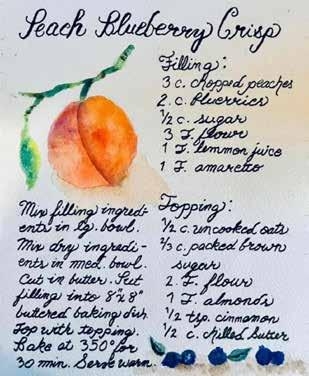 Peach Blueberry Crisp
Filling:
3 c. chopped peaches
2. c. bluerries
1/2 c. sugar
3 T. flour
1 T. lemmon juice
1 T. amaretto
Topping:
1/2 c. uncooked oats
2/3 c. packed brown
sugar
2. T. flour
1 T. almonds
1/2 tsp. cinnamon
1/2 c. chilled butter
Mix filling ingredi-
ents in lg. bowl.
Mix dry ingredi-
ents in med. bowl.
Cut in butter. Put
filling into 8"x8"
buttered baking dish.
Top with topping.
Bake at 350° for
30 min. Serve warm.